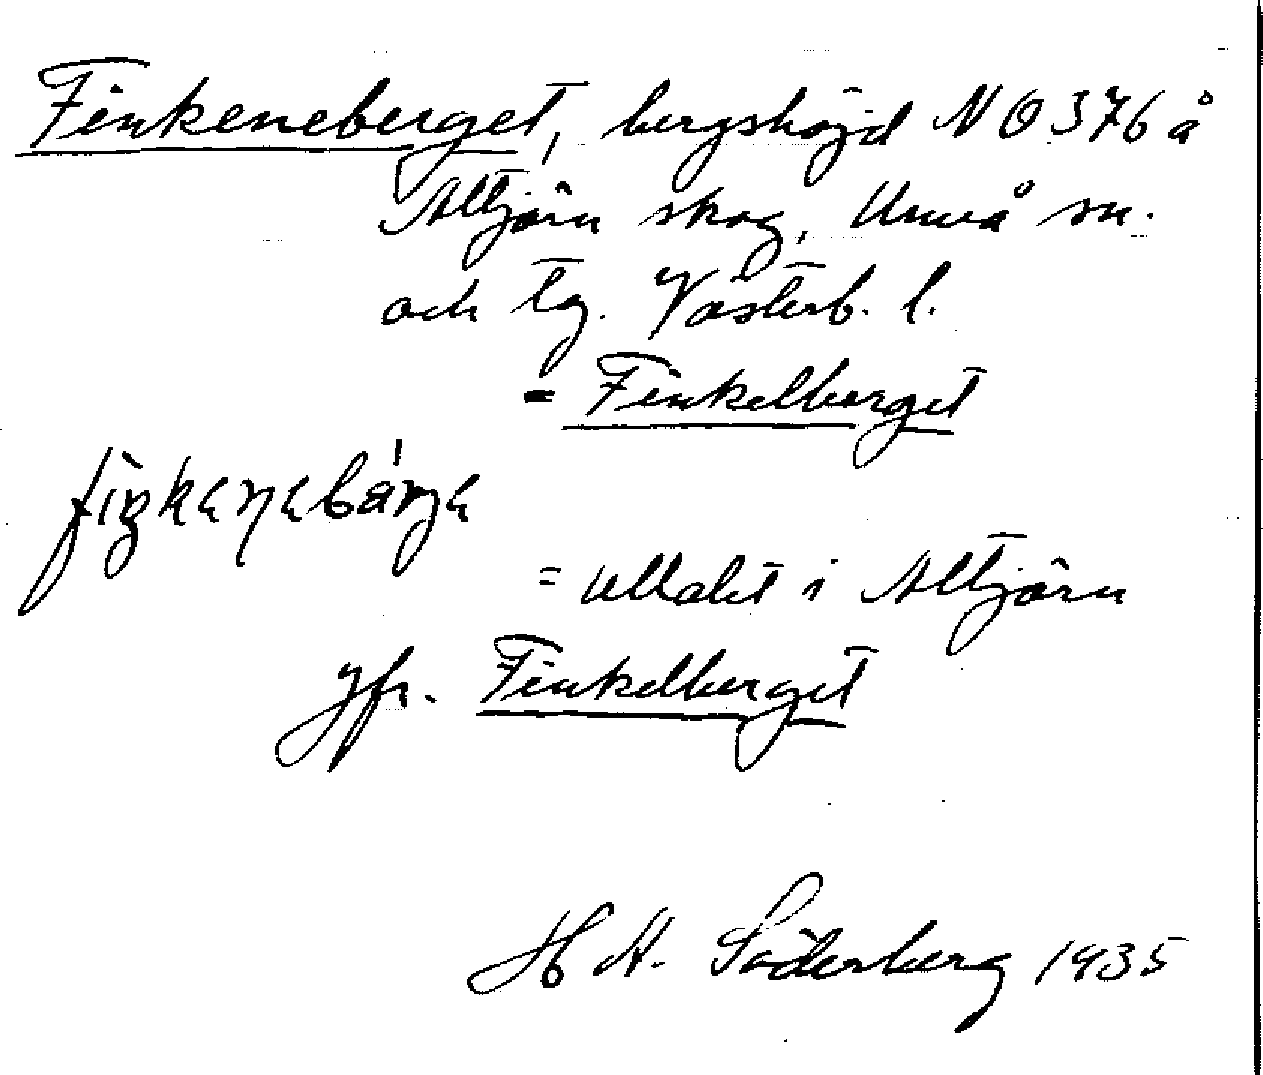 Finkeneberget, bergshöjd NO 376 å
Alltjärn skog, Umeå sn.
och tg. Västerb. l.
= Finkelberget
= uttalet i Alltjärn
jfr. Finkelberget
H A. Söderberg 1935